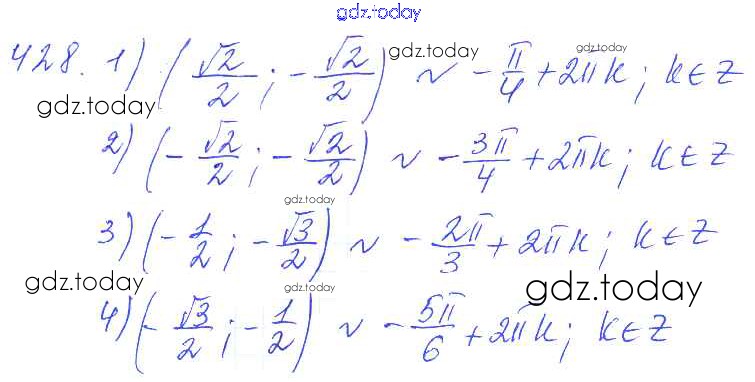 gdz.today
428. 1) (√2/2 ; -√2/2) ~ -π/4 + 2πk ; k∈Z
gdz.today
gdz.today
gdz.today
2) (-√2/2 ; -√2/2) ~ -3π/4 + 2πk ; k∈Z
gdz.today
3) (-1/2 ; -√3/2) ~ -2π/3 + 2πk ; k∈Z
gdz.today
gdz.today
4) (-√3/2 ; -1/2) ~ -5π/6 + 2πk ; k∈Z
gdz.today